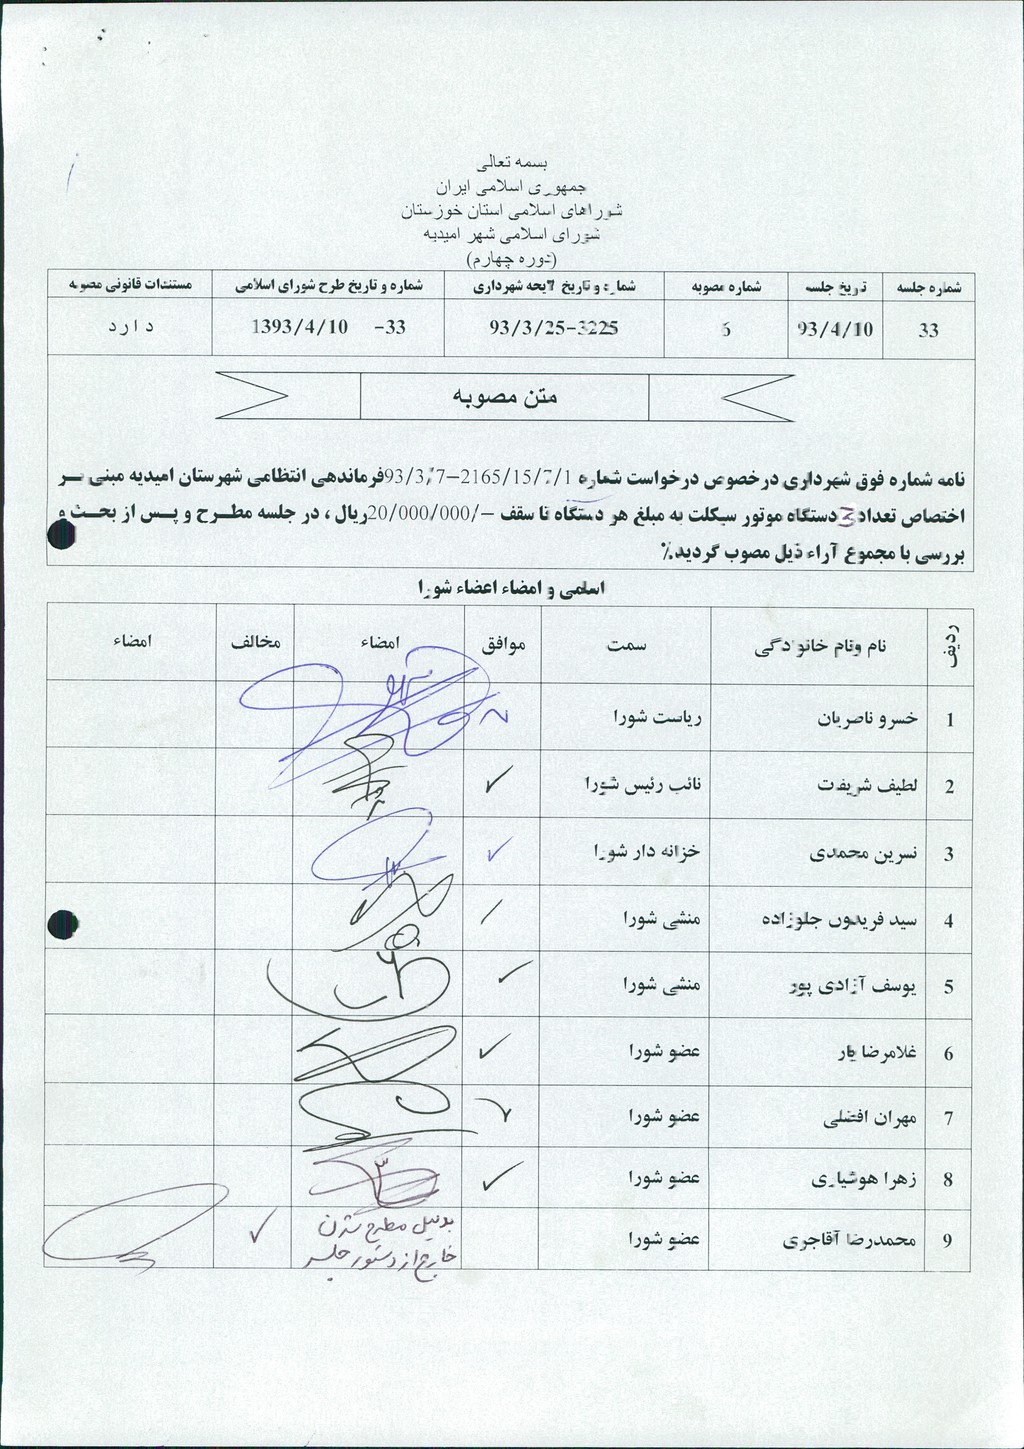 بسمه تعالی
جمهوری اسلامی ایران
شوراهای اسلامی استان خوزستان
شورای اسلامی شهر امیدیه
(دوره چهارم)
شماره جلسه تاریخ جلسه شماره مصوبه شماره و تاریخ لایحه شهرداری شماره و تاریخ طرح شورای اسلامی مستندات قانونی مصوبه
33 93/4/10 6 93/3/25-3225 1393/4/10 -33 دارد
متن مصوبه
نامه شماره فوق شهرداری درخصوص درخواست شماره 93/3/7–2165/15/7/1فرماندهی انتظامی شهرستان امیدیه مبنی بر
اختصاص تعداد 3 دستگاه موتور سیکلت به مبلغ هر دستگاه تا سقف –/20/000/000ریال ، در جلسه مطرح و پس از بحث و
بررسی با مجموع آراء ذیل مصوب گردید.٪
اسامی و امضاء اعضاء شورا
ردیف نام ونام خانوادگی سمت موافق امضاء مخالف امضاء
1 خسرو ناصریان ریاست شورا
2 لطیف شریفات نائب رئیس شورا ✓
3 نسرین محمدی خزانه دار شورا ✓
4 سید فریدون جلوزاده منشی شورا
5 یوسف آزادی پور منشی شورا ✓
6 غلامرضا یار عضو شورا ✓
7 مهران افضلی عضو شورا ✓
8 زهرا هوشیاری عضو شورا ✓
9 محمدرضا آقاجری عضو شورا بدلیل مطرح شدن ✓
خارج از دستور جلسه